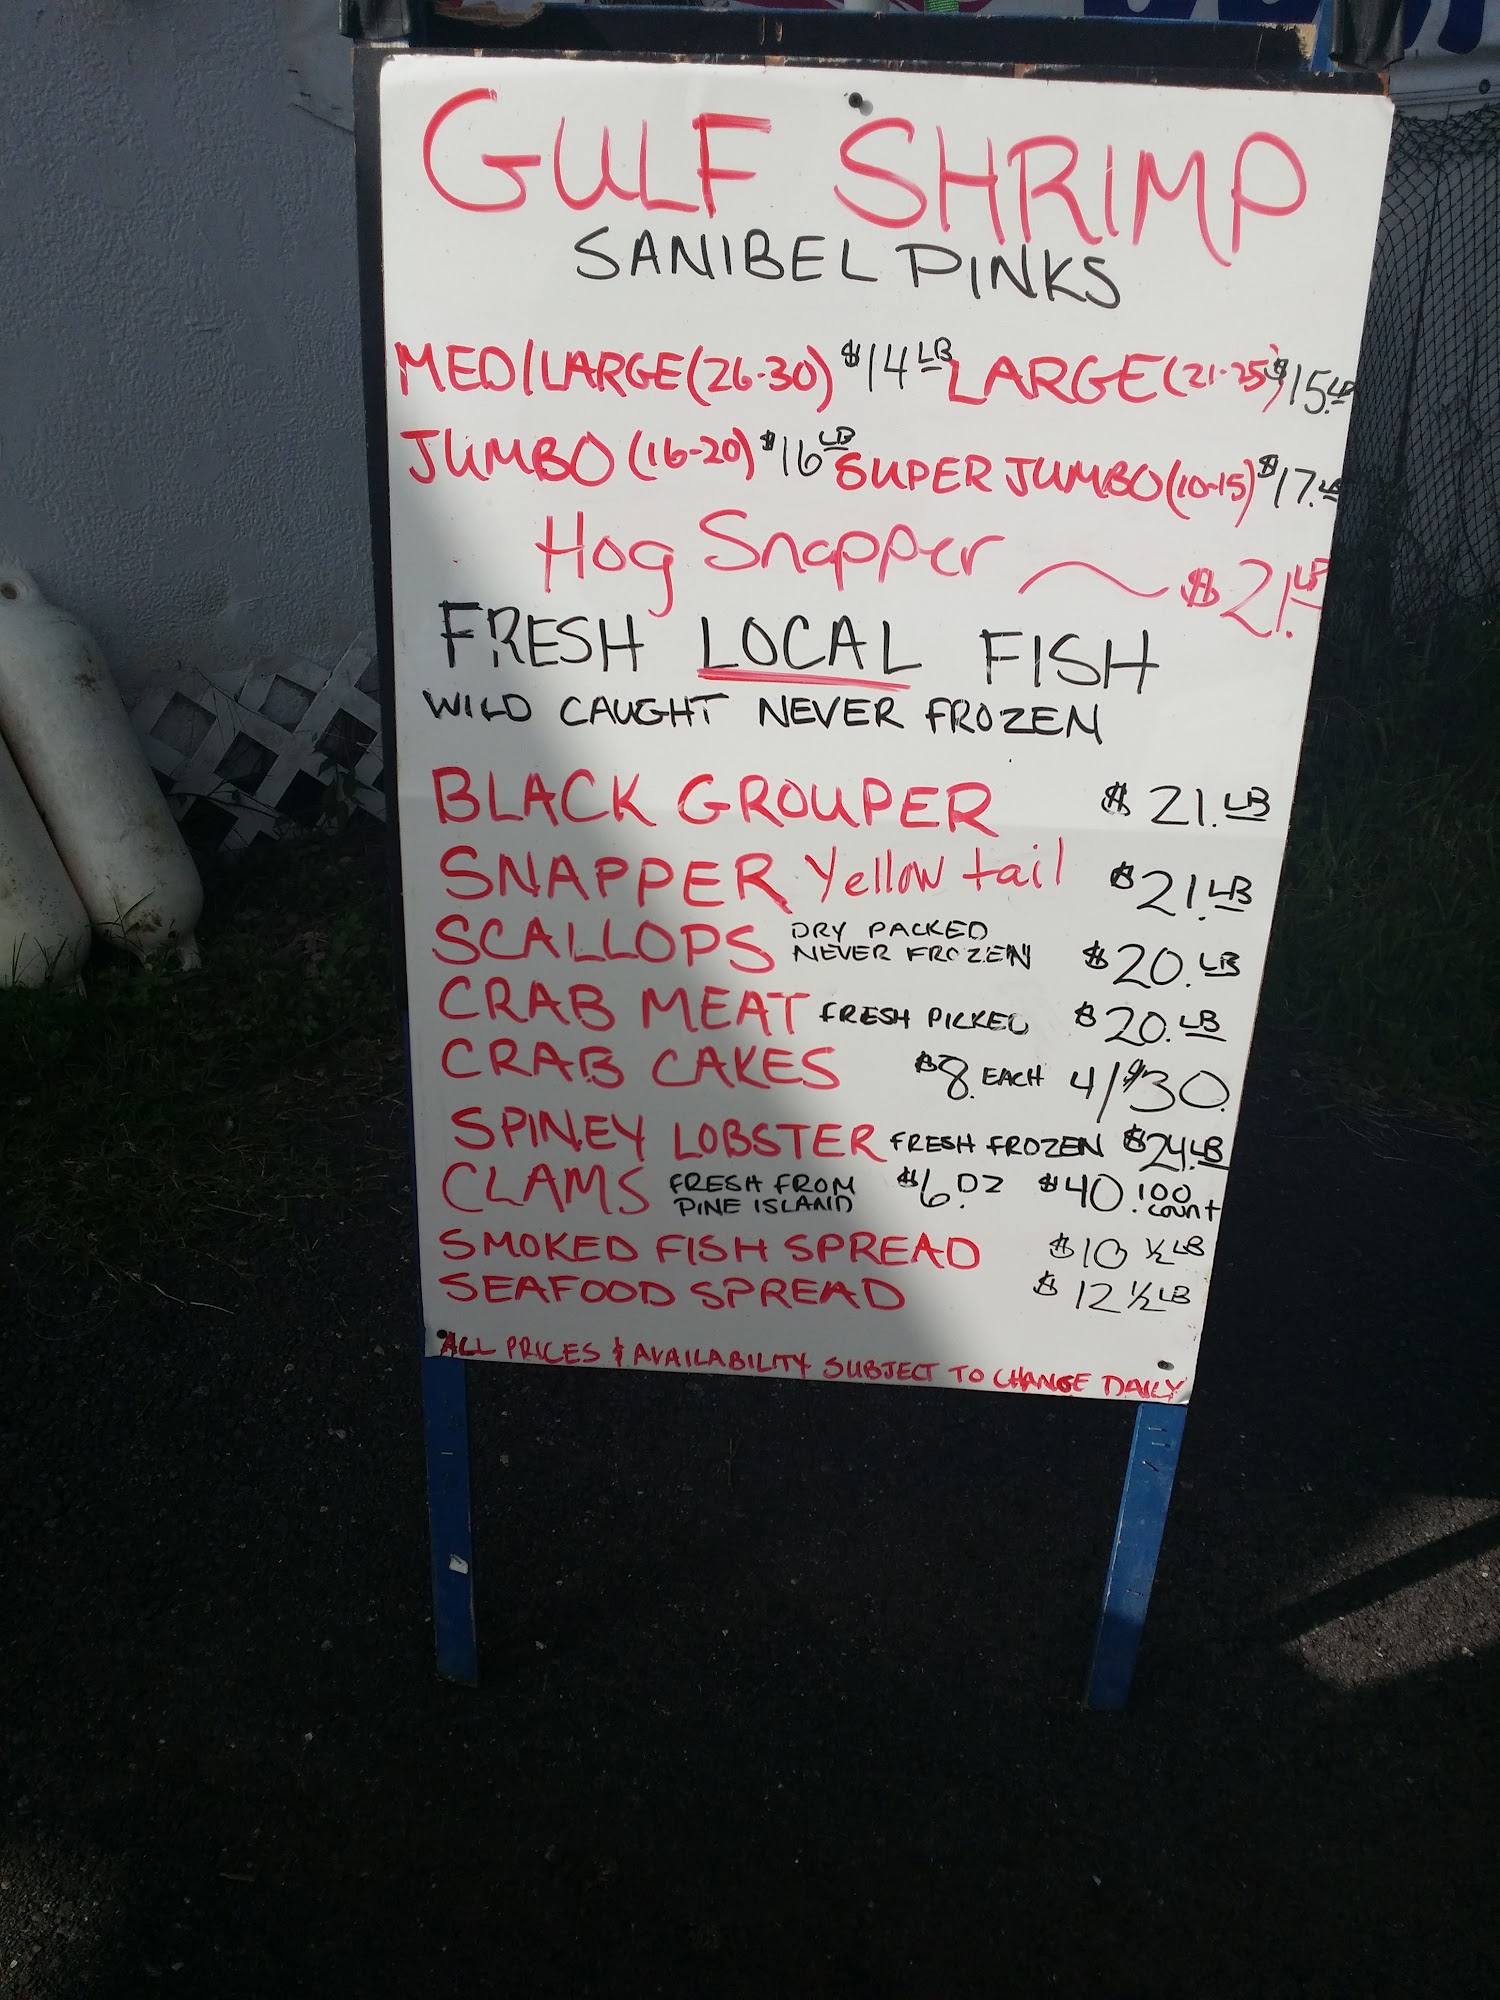 GULF SHRIMP
SANIBEL PINKS
MED/LARGE (26-30) $14 LB LARGE (21-25) $15. LB
JUMBO (16-20) $16 LB SUPER JUMBO (10-15) $17. LB
Hog Snapper ~ $21. LB
FRESH LOCAL FISH
WILD CAUGHT NEVER FROZEN
BLACK GROUPER $21. LB
SNAPPER Yellow tail $21. LB
SCALLOPS DRY PACKED NEVER FROZEN $20. LB
CRAB MEAT FRESH PICKED $20. LB
CRAB CAKES $8. EACH 4/$30.
SPINEY LOBSTER FRESH FROZEN $24. LB
CLAMS FRESH FROM PINE ISLAND $6. DZ $40. 100 count
SMOKED FISH SPREAD $10 ½ LB
SEAFOOD SPREAD $12 ½ LB
ALL PRICES & AVAILABILITY SUBJECT TO CHANGE DAILY